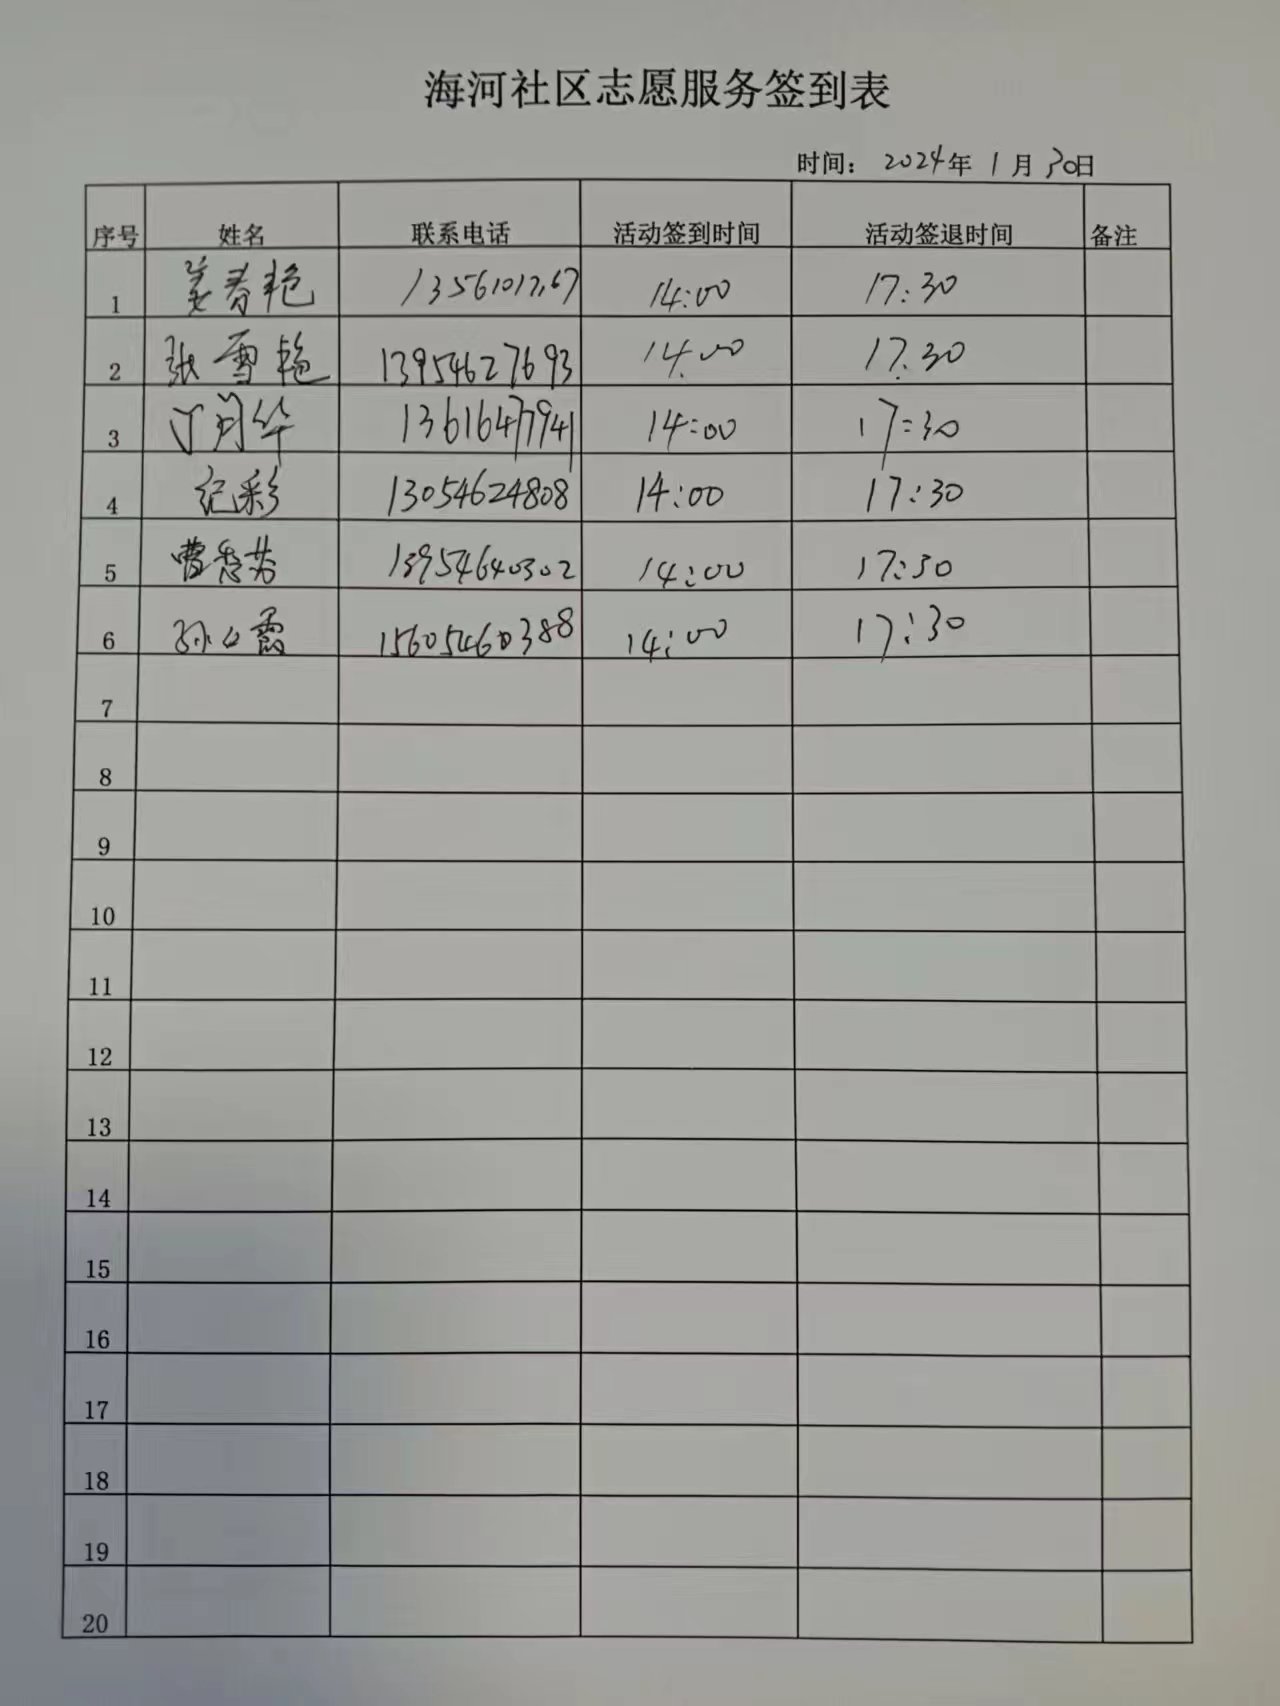 海河社区志愿服务签到表
时间： 2024年 1月30日
序号 姓名 联系电话 活动签到时间 活动签退时间 备注
1 姜春艳 14:00 17:30
2 张雪艳 13954627693 14:00 17:30
3 丁月华 13616477941 14:00 17:30
4 纪彩 13054624808 14:00 17:30
5 曹 13954640302 14:00 17:30
6 孙 霞 15605460388 14:00 17:30
7
8
9
10
11
12
13
14
15
16
17
18
19
20